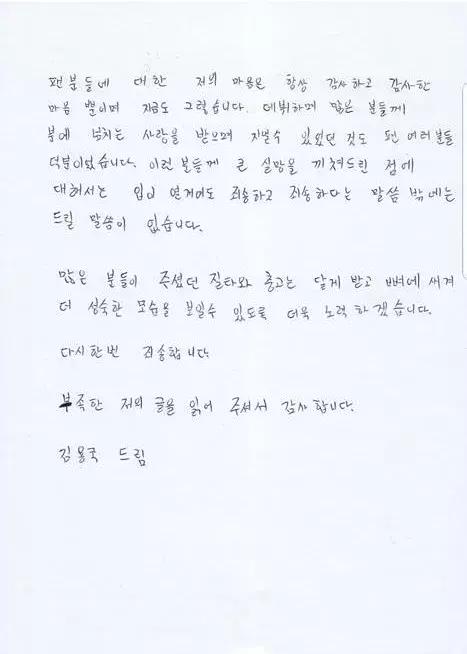 팬분들에 대한 저의 마음은 항상 감사하고 감사한
마음 뿐이며 지금도 그렇습니다. 데뷔하며 많은 분들께
분에 넘치는 사랑을 받으며 지낼수 있었던 것도 팬 여러분들
덕분이었습니다. 이런 분들께 큰 실망을 끼쳐드린 점에
대해서는 입이 열개여도 죄송하고 죄송하다는 말씀 밖에는
드릴 말씀이 없습니다.
많은 분들이 주셨던 질타와 충고는 달게 받고 뼈에 새겨
더 성숙한 모습을 보일수 있도록 더욱 노력 하겠습니다.
다시한번 죄송합니다
부족한 저의 글을 읽어 주셔서 감사합니다.
김용국 드림